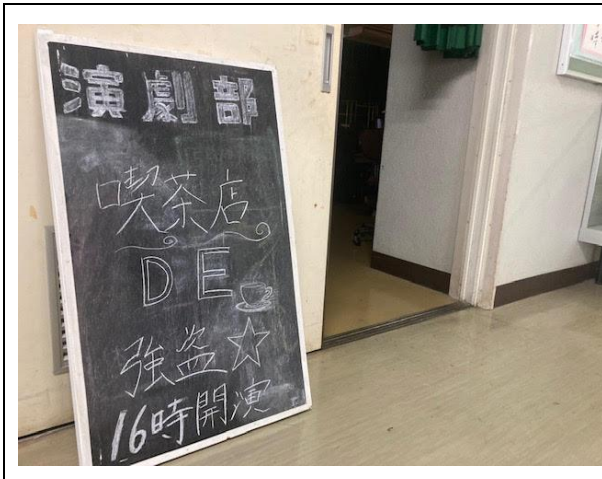 演劇部
喫茶店
DE
強盗☆
16時開演